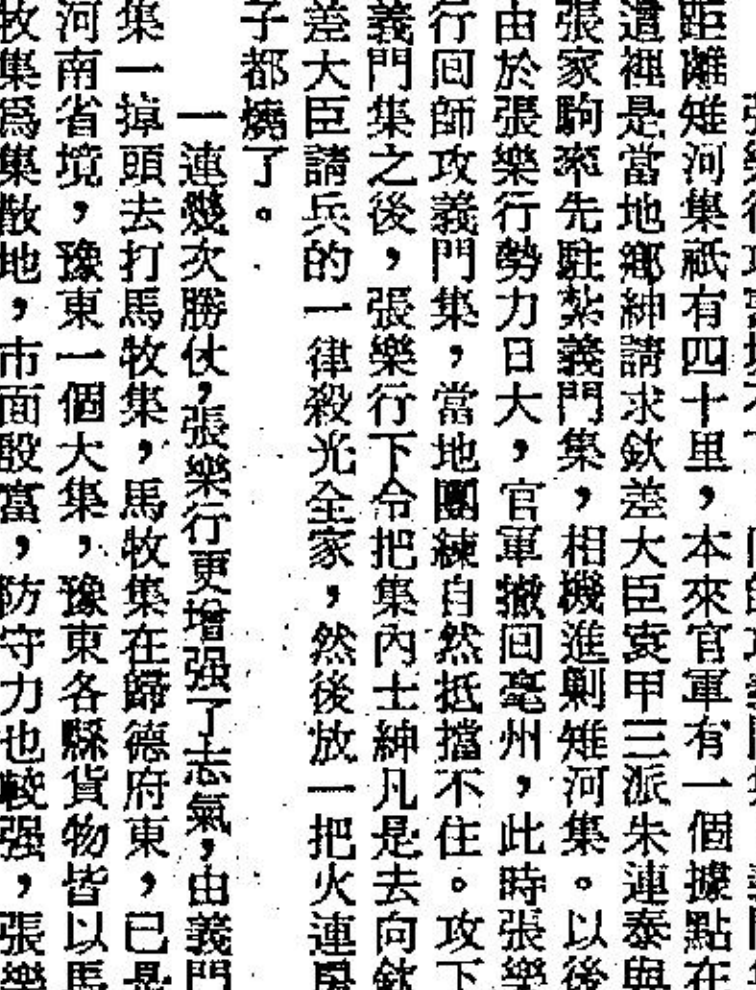 距離雉河集祇有四十里，本來官軍有一個據點在
這裡是當地鄉紳請求欽差大臣袁甲三派朱連泰與
張家駒率先駐紮義門集，相機進剿雉河集。以後
由於張樂行勢力日大，官軍撤回亳州，此時張樂
行回師攻義門集，當地團練自然抵擋不住。攻下
義門集之後，張樂行下令把集內士紳凡是去向欽
差大臣請兵的一律殺光全家，然後放一把火連房
子都燒了。
一連幾次勝仗，張樂行更增强了志氣，由義門
集一掉頭去打馬牧集，馬牧集在歸德府東，已是
河南省境，豫東一個大集，豫東各縣貨物皆以馬
牧集爲集散地，市面殷富，防守力也較强，張樂